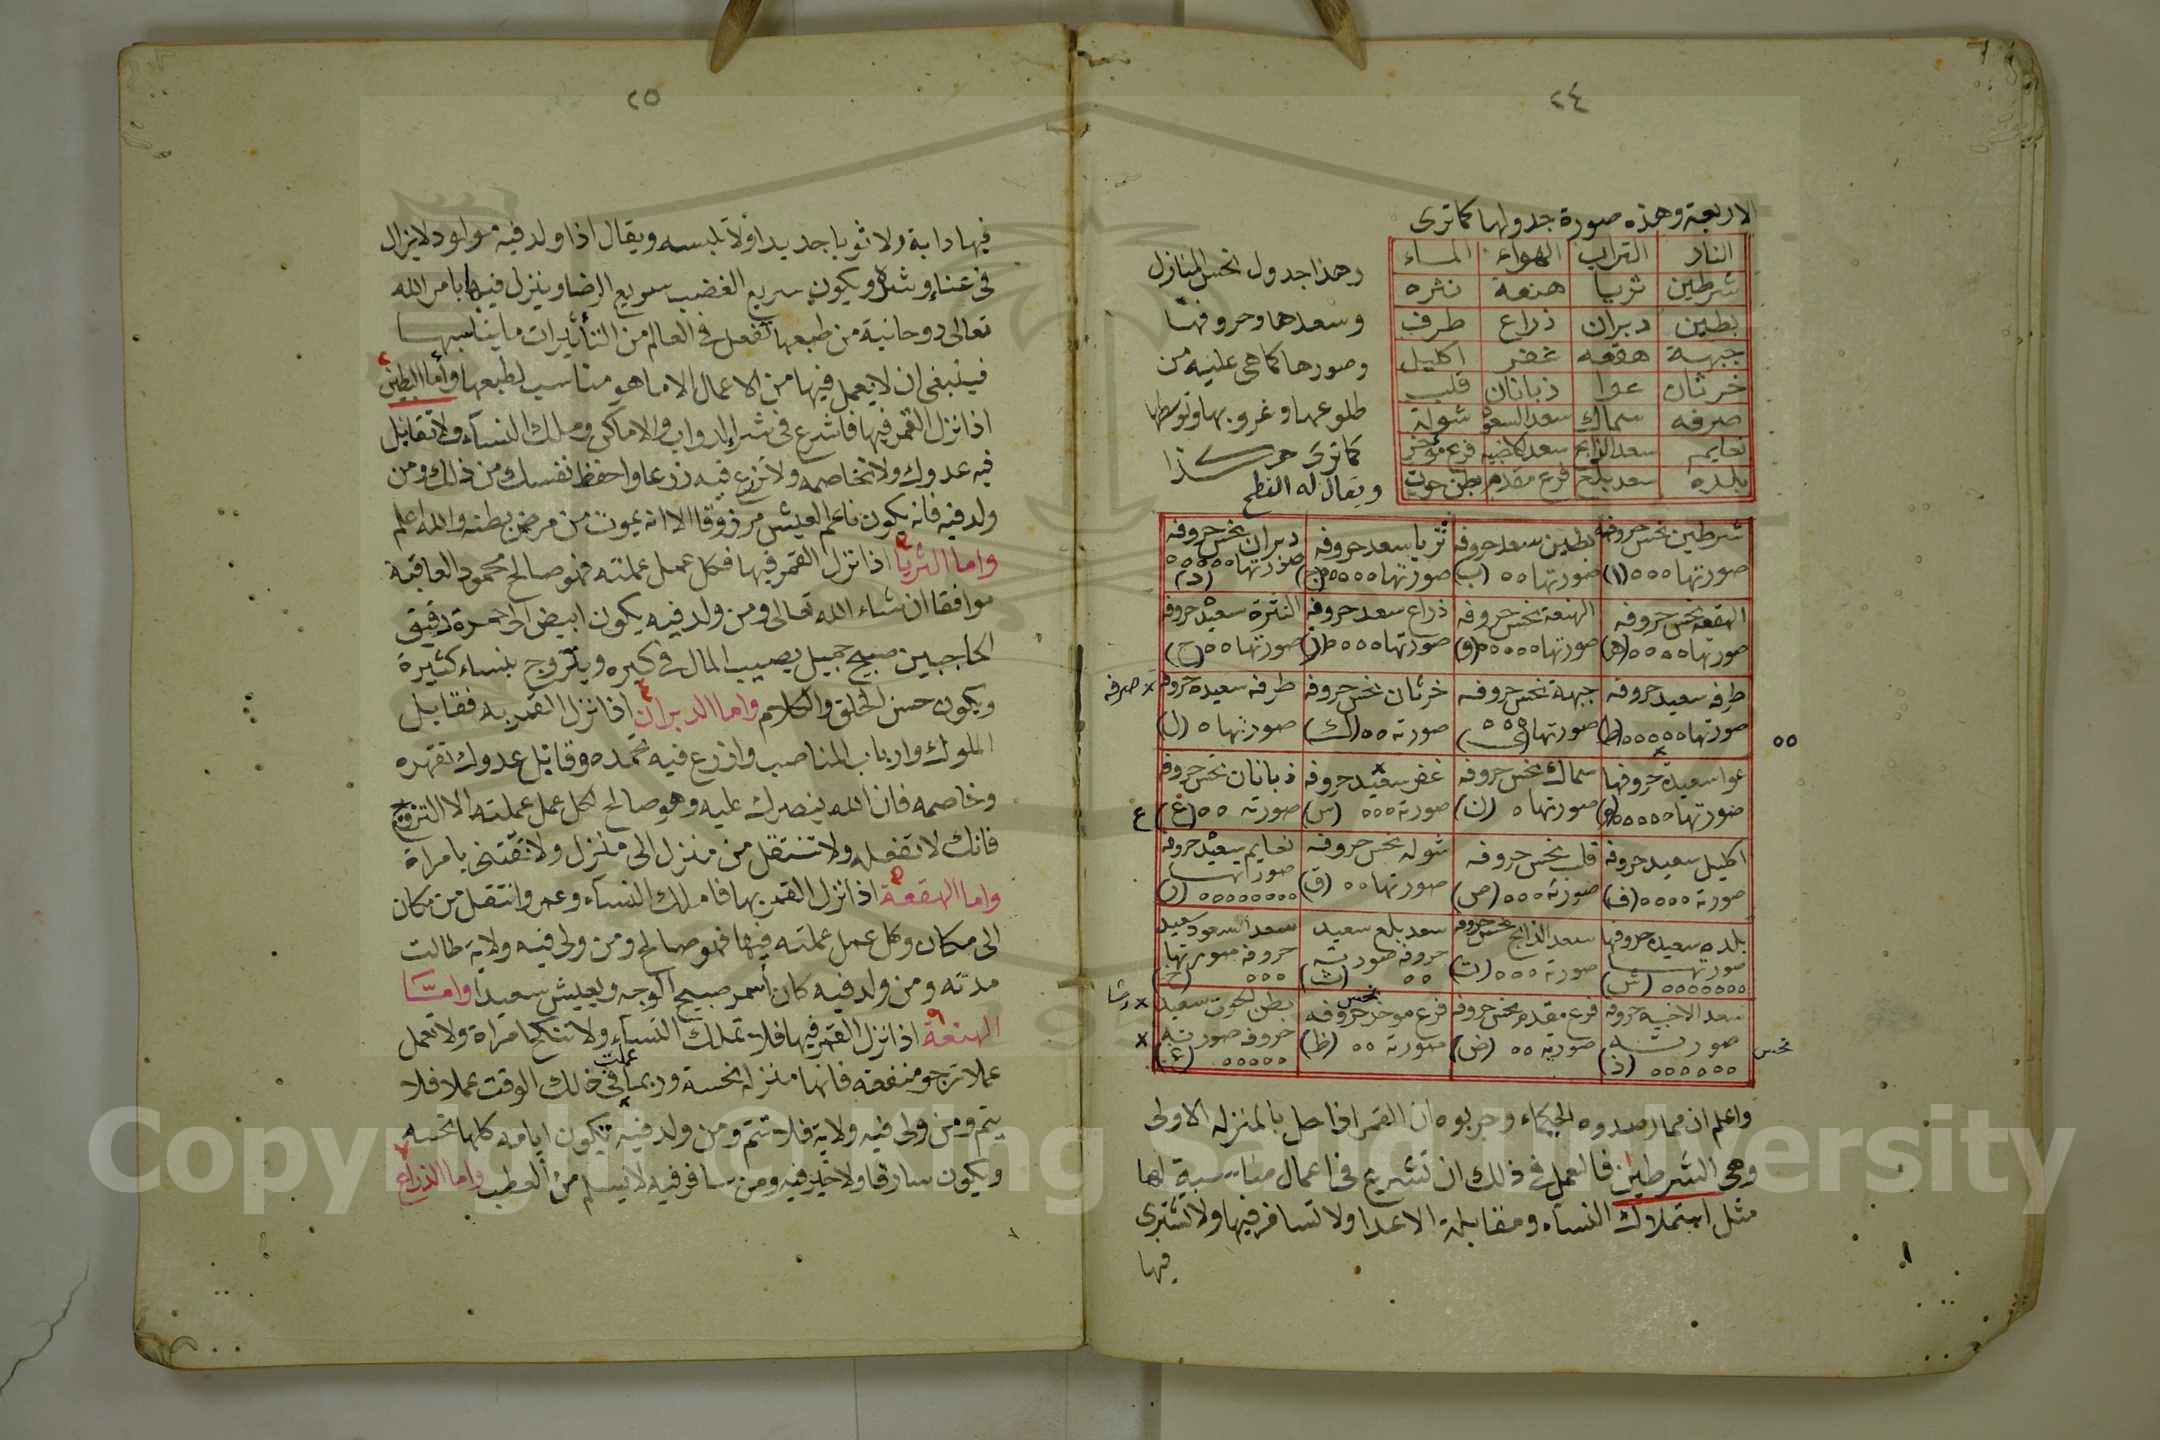 ٢٤
الاربعة وهذه صورة جدولها كما ترى
النار التراب الهواء الماء
شرطين ثريا هنعة نثره
بطين دبران ذراع طرف
جبهة هقعه غفر اكليل
خرثان عوا ذبانان قلب
صرفه سماك سعد السعود شولة
نعايم سعد الذابح سعد الاخبيه فرع مؤخر
بلده سعد بلع فرع مقدم بطن حوت
وهذا جدول نحس المنازل
وسعدها وحروفها
وصورها كما هى عليه من
طلوعها وغروبها وتوسطها
كما ترى
ويقال له النطح
شرطين نحس حروفه بطين سعد حروفه ثريا سعد حروفه دبران نحس حروفه
صورتها ٥٥٥ (ا) صورتها ٥٥ (ب) صورتها ٥٥٥٥ (ج) صورتها ٥٥٥٥٥ (د)
الهقعه نحس حروفه الهنعة نحس حروفه ذراع سعد حروفه النثرة سعيد حروفه
صورتها ٥٥٥٥ (ه) صورتها ٥٥٥٥٥ (و) صورتها ٥٥٥٥ (ز) صورتها ٥٥ (ح)
طرفه سعيد حروفه جبهة نحس حروفه خرثان نحس حروفه طرفه سعيده حروفه × صرفه
صورتها ٥٥٥٥٥ (ط) صورتها ٥٥٥ (ى) صورته ٥٥ (ك) صورتها ٥ (ل)
٥٥
عوا سعيدة حروفها سماك نحس حروفه غفر سعيد حروفه ذبانان نحس حروفه
صورتها ٥٥٥٥٥ (م) صورتها ٥ (ن) صورته ٥٥٥ (س) صورته ٥٥ (ع) ع
اكليل سعيد حروفه قلب نحس حروفه شوله نحس حروفه نعايم سعيد حروفه
صورته ٥٥٥٥ (ف) صورته ٥٥٥ (ص) صورتها ٥٥ (ق) صورتها ٥٥٥٥٥٥٥٥ (ر)
بلده سعيده حروفها سعد الذابح نحس حروفه سعد بلع سعيد سعد السعود سعيد
صورتها ٥٥٥٥٥٥٥ (ش) صورته ٥٥٥ (ت) حروفه صورته ٥٥ (ث) حروفه صورتها ٥٥٥ (خ)
سعد الاخبيه حروفه فرع مقدم نحس حروفه فرع موخر نحس حروفه بطن الحوت سعيد × رشا
صورته ٥٥٥٥٥٥ (ذ) صورته ٥٥ (ض) صورته ٥٥ (ظ) حروفه صورته ٥٥٥٥٥ (غ) ×
نحس
واعلم ان مما رصدوه الحكماء وجربوه ان القمر اذا حل بالمنزله الاولى
وهى الشرطين فالعمل فى ذلك ان تشرع فى اعمال مناسبة لها
مثل استملاك النسآء ومقابلة الاعدا ولا تسافر فيها ولا تشترى
فيها
٢٥
فيها دابة ولا ثوبا جديدا ولا تلبسه ويقال اذا ولد فيه مولود لا يزال
فى عناء وشدة ويكون سريع الغضب سريع الرضا وينزل فيها بامر الله
تعالى روحانية من طبعها تفعل فى العالم من التأثيرات ما يناسبها
فينبغى ان لا يعمل فيها من الاعمال الا ما هو مناسب لطبعها وأما البطين
اذا نزل القمر فيها فاشرع فى شراء الدواب والاماكن وملك النسآء ولا تقابل
فيه عدوك ولا تخاصمه ولا تزرع فيه زرعا واحفظ نفسك من ذلك ومن
ولد فيه فانه يكون ناعم العيش مرزوقا الا انه يموت من مرض بطنه والله اعلم
واما الثريا اذا نزل القمر فيها فكل عمل عملته فهو صالح محمود العاقبة
موافقا ان شاء الله تعالى ومن ولد فيه يكون ابيض الى حمرة دقيق
الحاجبين صبيح جميل يصيب المال فى كبره ويتزوج بنساء كثيرة
ويكون حسن الخلق والكلام واما الدبران اذا نزل القمر به فقابل
الملوك وارباب المناصب وازرع فيه تحمده وقاتل عدوك تقهره
وخاصمه فان الله ينصرك عليه وهو صالح لكل عمل عملته الا التزويج
فانك لا تفعله ولا تنتقل من منزل الى منزل ولا تقتنى بامراة
واما الهقعة اذا نزل القمر بها فاملك النسآء وعمر وانتقل من مكان
الى مكان وكل عمل عملته فيها فهو صالح ومن ولى فيه ولاية طالت
مدته ومن ولد فيه كان أسمر صبيح الوجه ويعيش سعيدا وامّا
الهنعة اذا نزل القمر فيها فلا تملك النسآء ولا تنكح امراة ولا تعمل
عملا ترجو منفعته فانها منزلة نحسة وربما عملت فى ذلك الوقت عملا فلا
يتم ومن ولى فيه ولاية فلا تتم ومن ولد فيه تكون ايامه كلها نحسه
ويكون سارقا ولا خير فيه ومن سافر فيه لا يسلم من العطب واما الذراع
Copyright © King Saud University